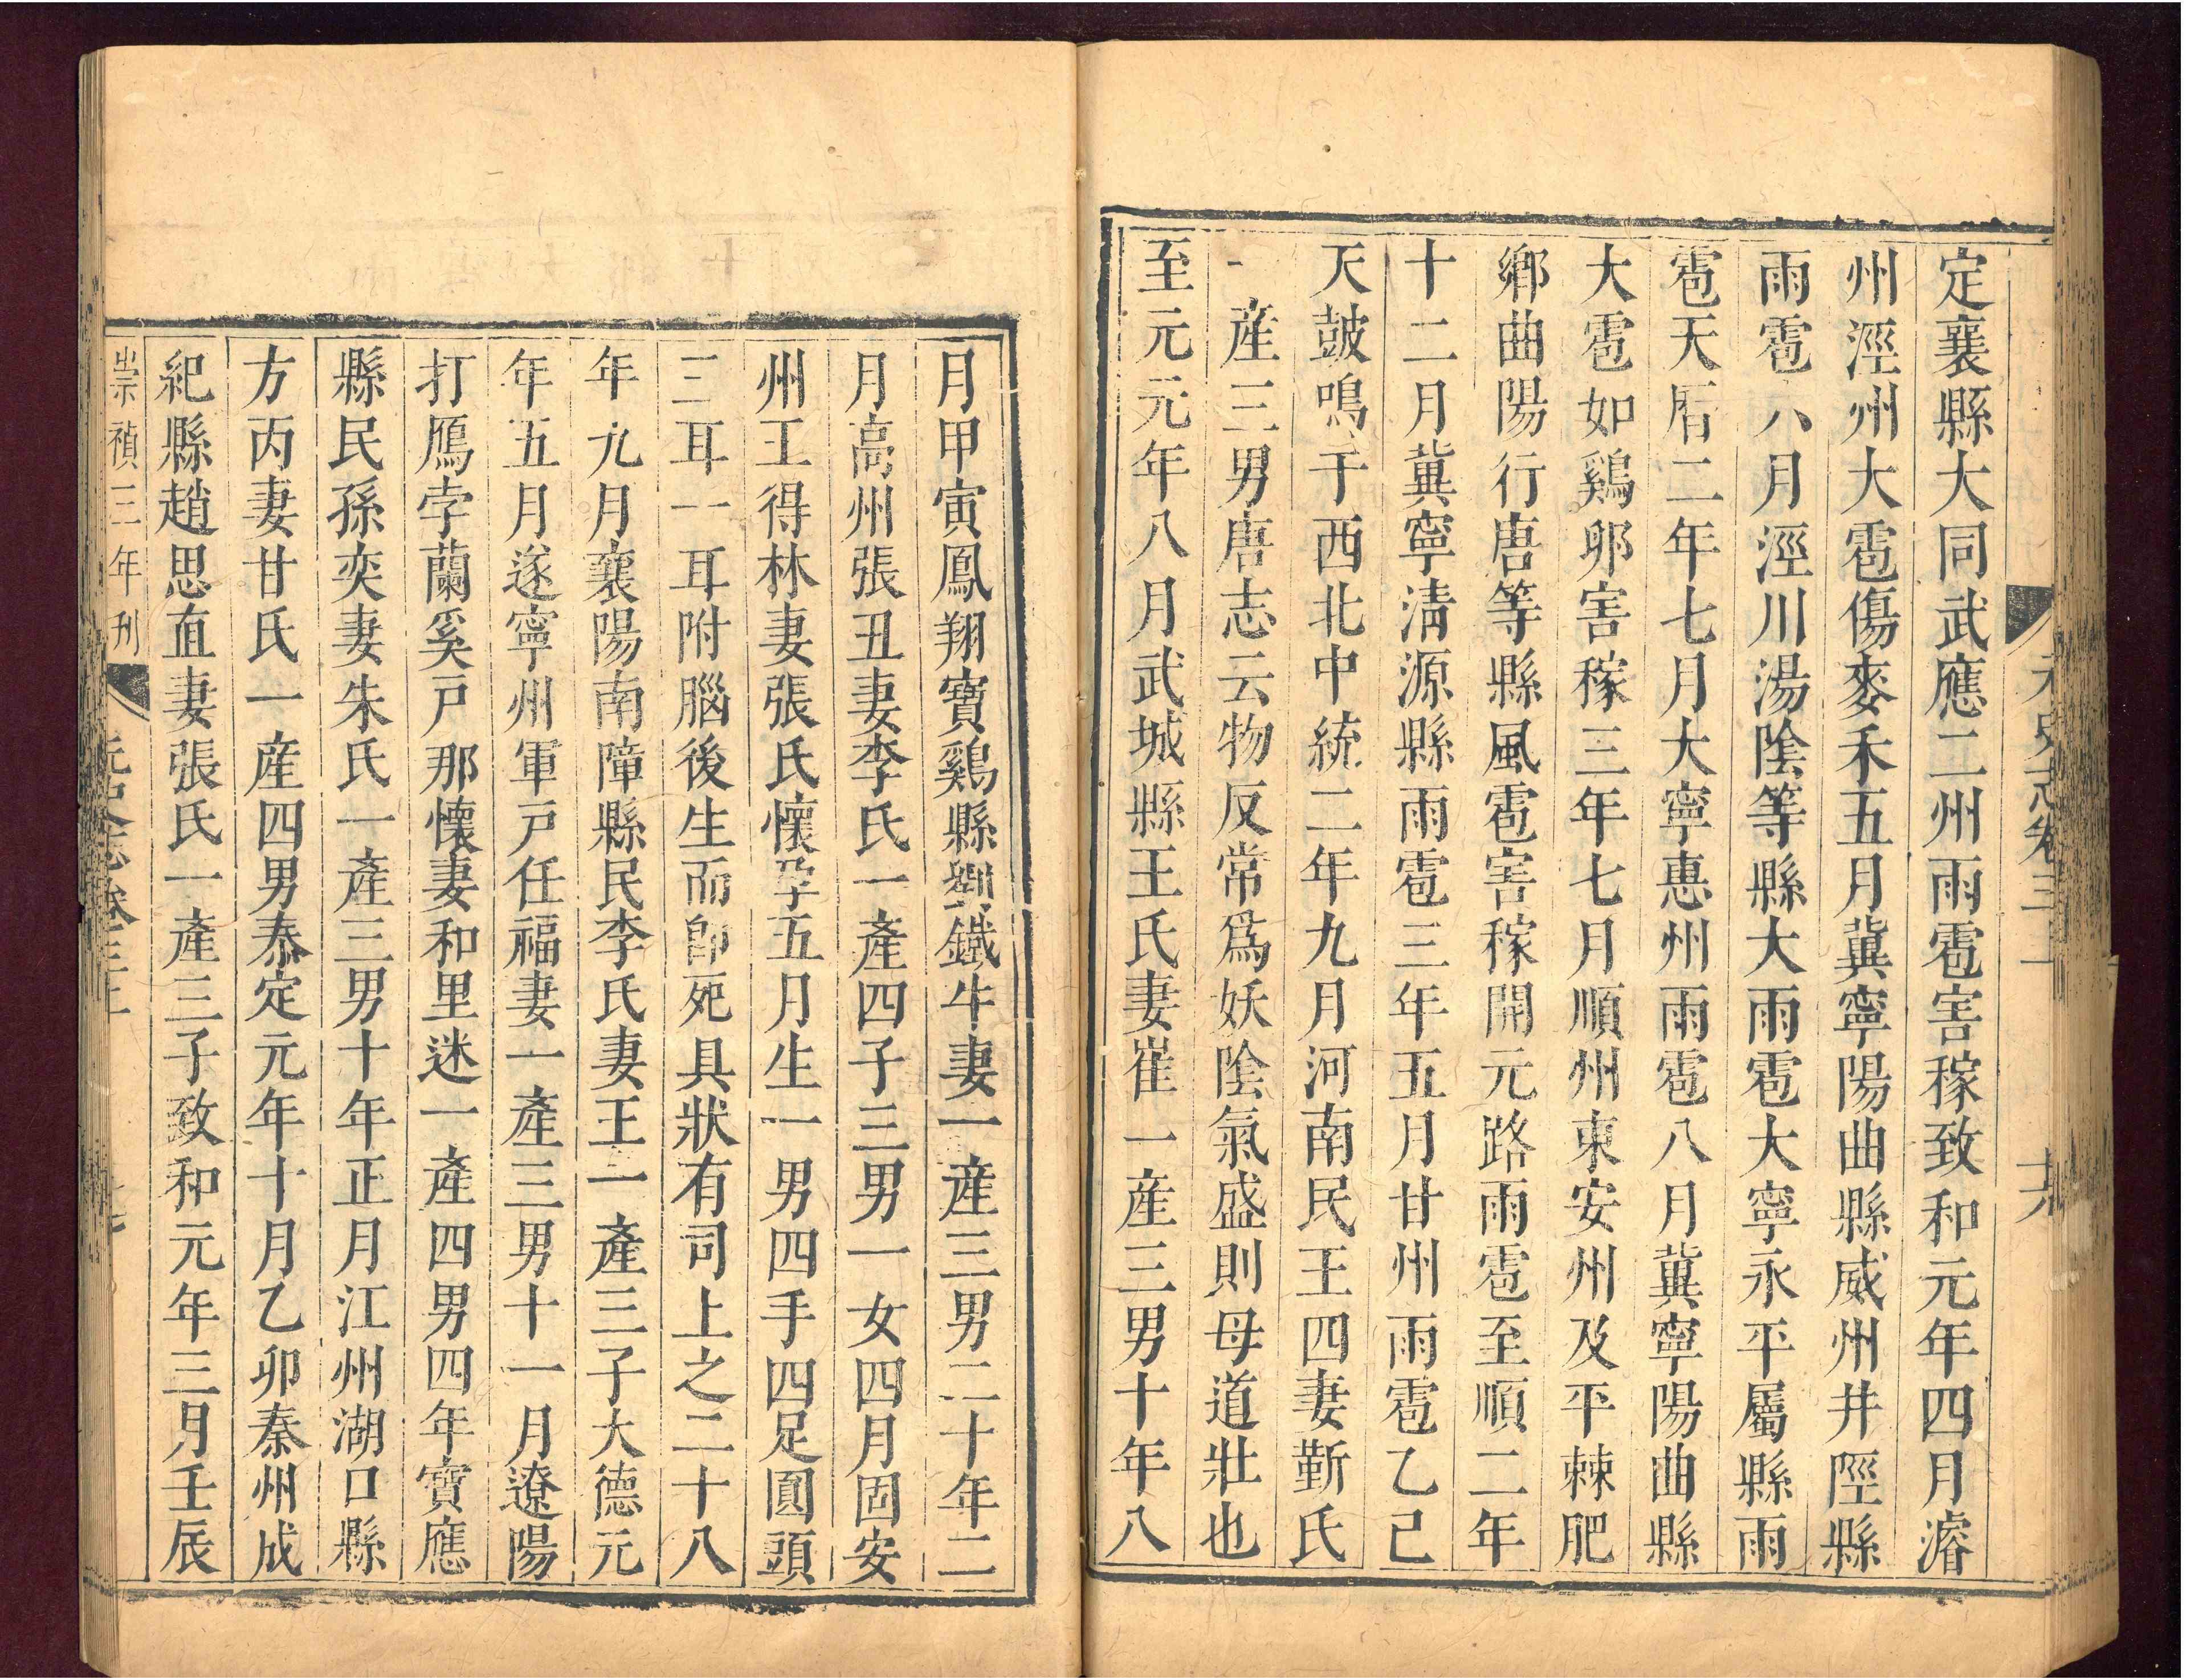 定襄縣大同武應二州雨雹害稼致和元年四月濬
州涇州大雹傷麥禾五月冀寧陽曲縣威州井陘縣
雨雹八月涇川湯陰等縣大雨雹大寧永平屬縣雨
雹天曆二年七月大寧惠州雨雹八月冀寧陽曲縣
大雹如鷄卵害稼三年七月順州東安州及平棘肥
鄉曲陽行唐等縣風雹害稼開元路雨雹至順二年
十二月冀寧清源縣雨雹三年五月甘州雨雹乙己
天鼓鳴于西北中統二年九月河南民王四妻靳氏
一產三男唐志云物反常爲妖陰氣盛則母道壯也
至元元年八月武城縣王氏妻崔一產三男十年八
月甲寅鳳翔寶鷄縣劉鐵牛妻一產三男二十年二
月高州張丑妻李氏一產四子三男一女四月固安
州王得林妻張氏懷孕五月生一男四手四足圓頭
三耳一耳附腦後生而卽死具狀有司上之二十八
年九月襄陽南障縣民李氏妻王一產三子大德元
年五月遂寧州軍戸任福妻一產三男十一月遼陽
打鴈孛蘭奚戸那懷妻和里迷一產四男四年寶應
縣民孫奕妻朱氏一產三男十年正月江州湖口縣
方丙妻甘氏一產四男泰定元年十月乙卯秦州成
紀縣趙思直妻張氏一產三子致和元年三月壬辰
崇禎三年刊
元史志卷三上